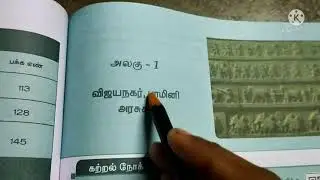 பக்க எண்
113
128
145
அலகு - 1
விஜயநகர்,
அரசுக
கற்றல் நோக்